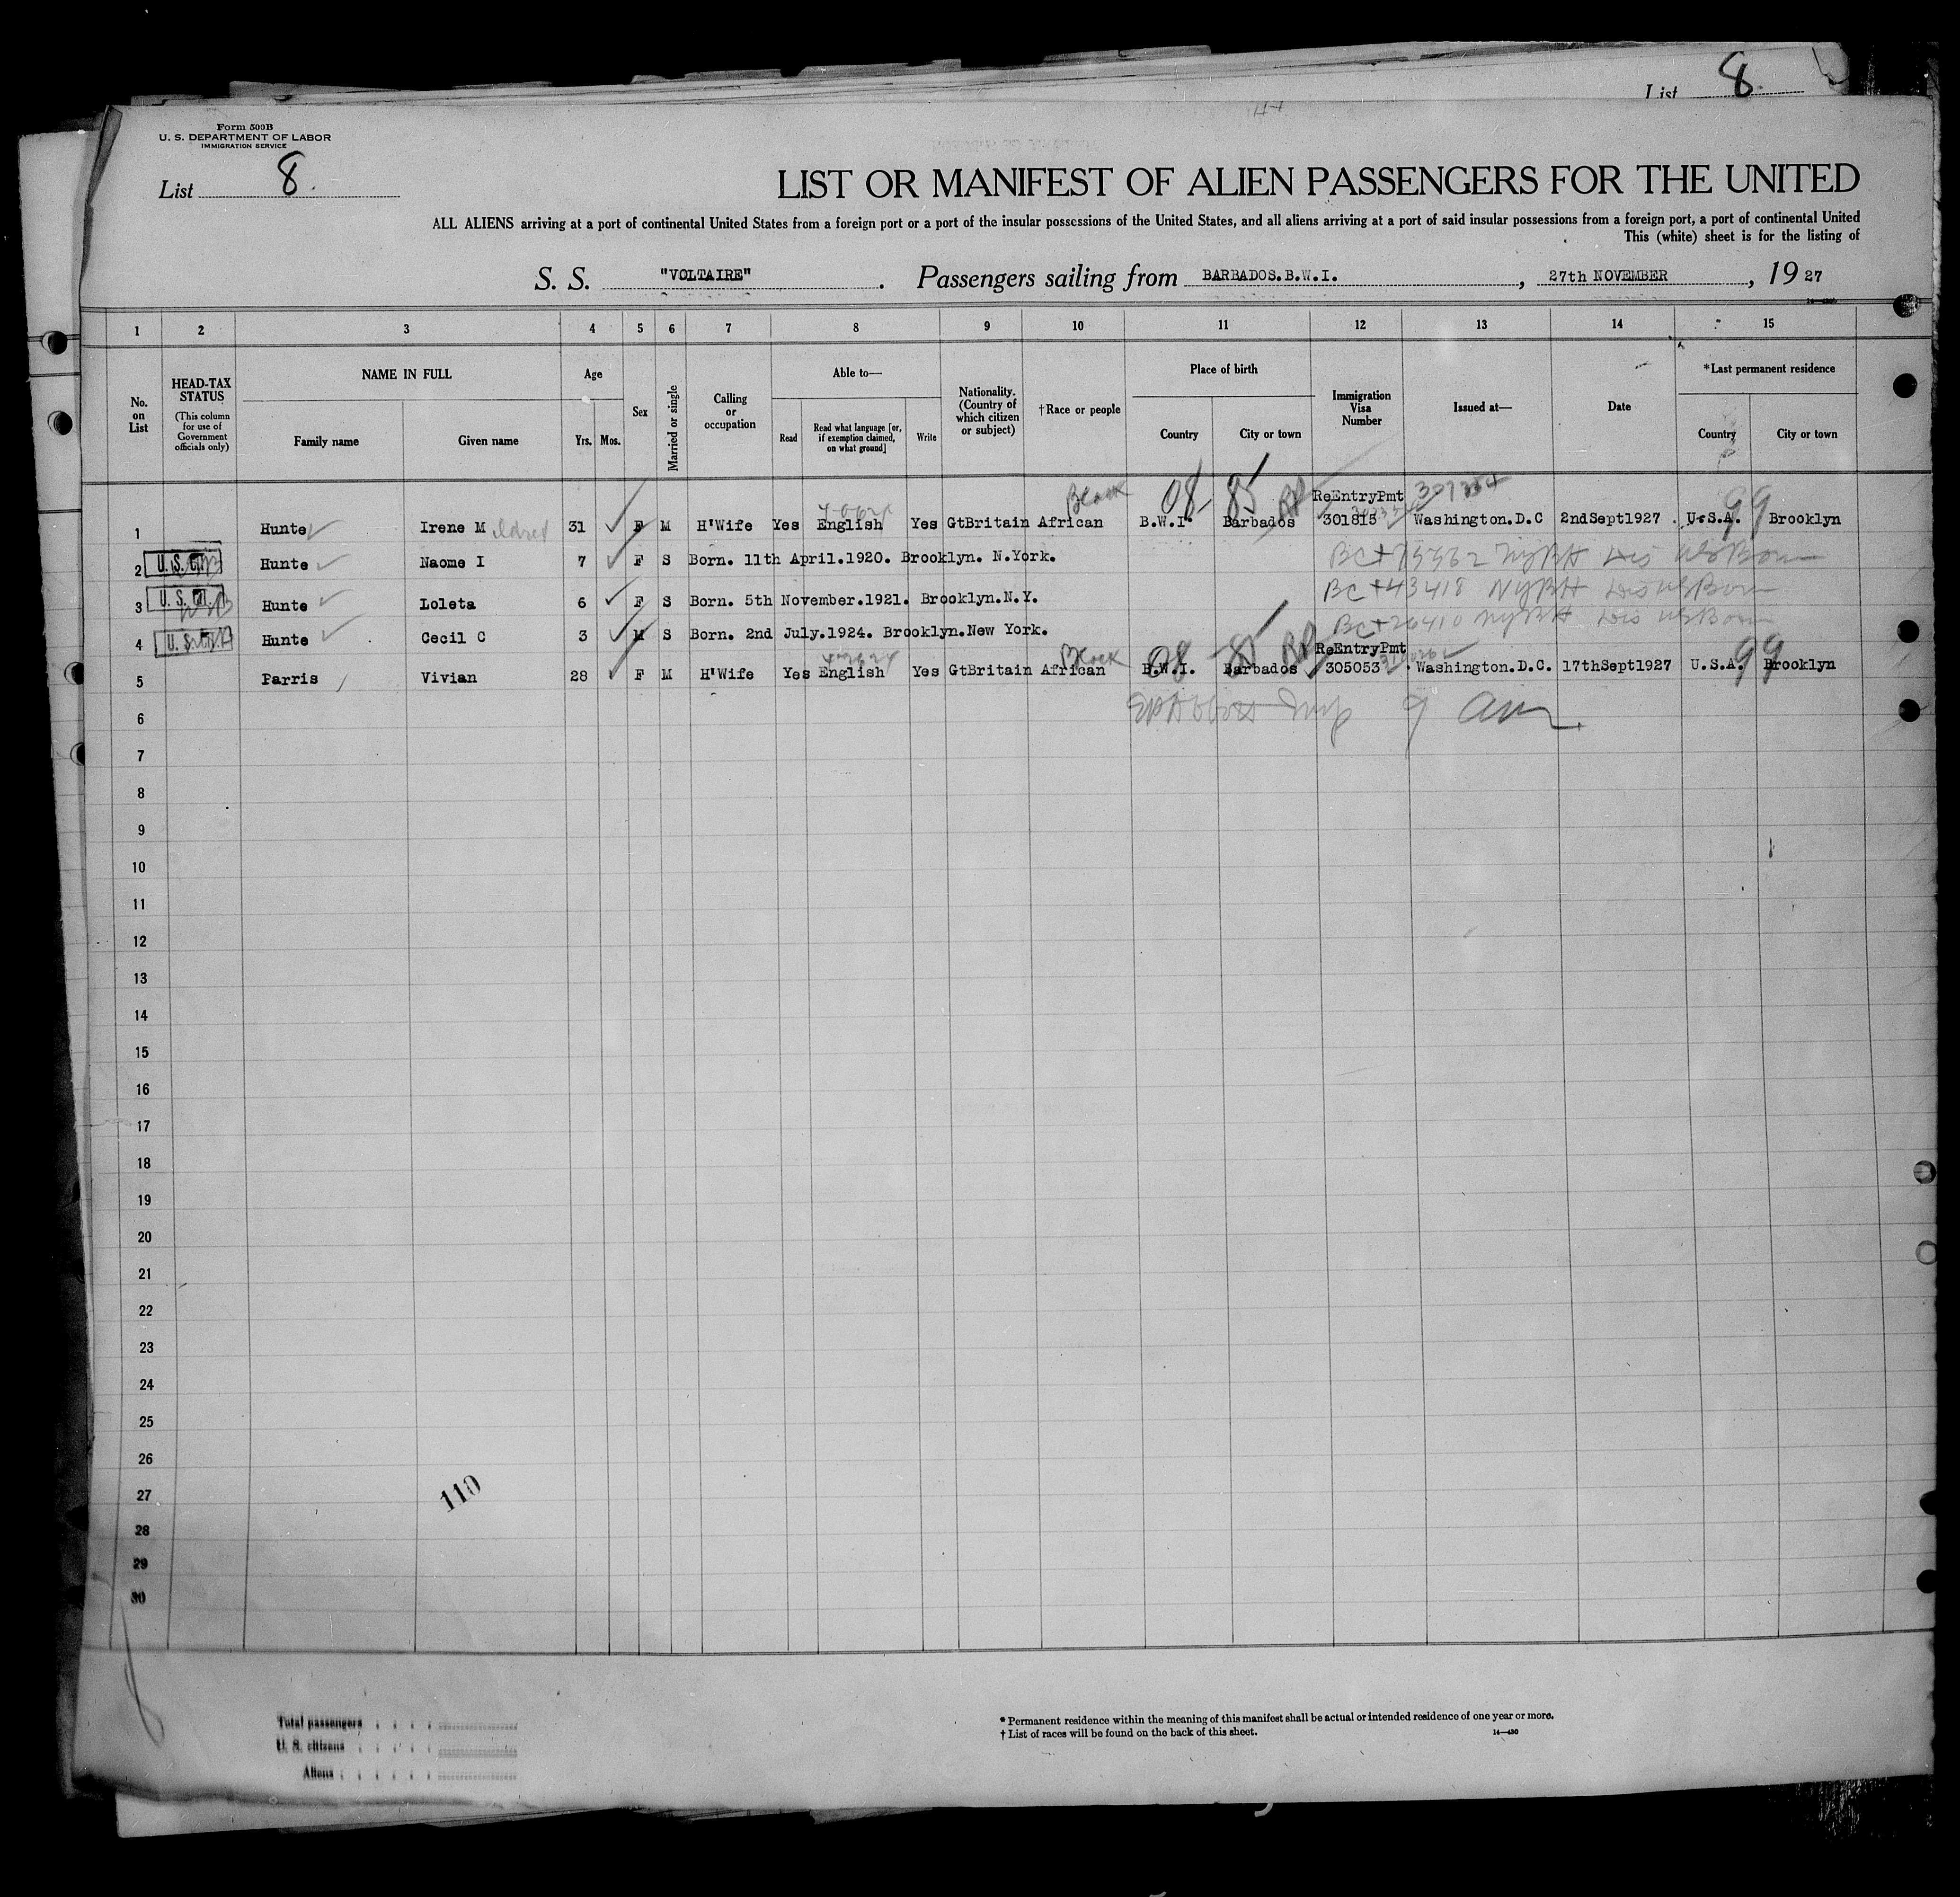 List 8.
Form 500B
U. S. DEPARTMENT OF LABOR
IMMIGRATION SERVICE
List 8.
LIST OR MANIFEST OF ALIEN PASSENGERS FOR THE UNITED
ALL ALIENS arriving at a port of continental United States from a foreign port or a port of the insular possessions of the United States, and all aliens arriving at a port of said insular possessions from a foreign port, a port of continental United
This (white) sheet is for the listing of
S. S. "VOLTAIRE". Passengers sailing from BARBADOS.B.W.I., 27th NOVEMBER, 1927
1 2 3 4 5 6 7 8 9 10 11 12 13 14 15
No. on List
HEAD-TAX STATUS
(This column for use of Government officials only)
NAME IN FULL
Family name Given name
Age
Yrs. Mos.
Sex
Married or single
Calling or occupation
Able to—
Read
Read what language [or, if exemption claimed, on what ground]
Write
Nationality. (Country of which citizen or subject)
†Race or people
Place of birth
Country City or town
Immigration Visa Number
Issued at—
Date
*Last permanent residence
Country City or town
Black 08 85 ReEntryPmt
1 Hunte Irene Mildred 31 F M H'Wife Yes English Yes GtBritain African B.W.I. Barbados 301815 Washington.D.C 2ndSept1927 U.S.A. 99 Brooklyn
2 U.S. Hunte Naome I 7 F S Born. 11th April.1920. Brooklyn. N.York.
3 U.S. Hunte Loleta 6 F S Born. 5th November.1921. Brooklyn.N.Y. BC 43418
4 U.S. Hunte Cecil C 3 M S Born. 2nd July.1924. Brooklyn.New York.
Black 08 85 ReEntryPmt
5 Parris Vivian 28 F M H'Wife Yes English Yes GtBritain African B.W.I. Barbados 305053 Washington.D.C. 17thSept1927 U.S.A. 99 Brooklyn
6
7
8
9
10
11
12
13
14
15
16
17
18
19
20
21
22
23
24
25
26
27 110
28
29
30
Total passengers
U. S. citizens
Aliens
* Permanent residence within the meaning of this manifest shall be actual or intended residence of one year or more.
† List of races will be found on the back of this sheet.
14—430